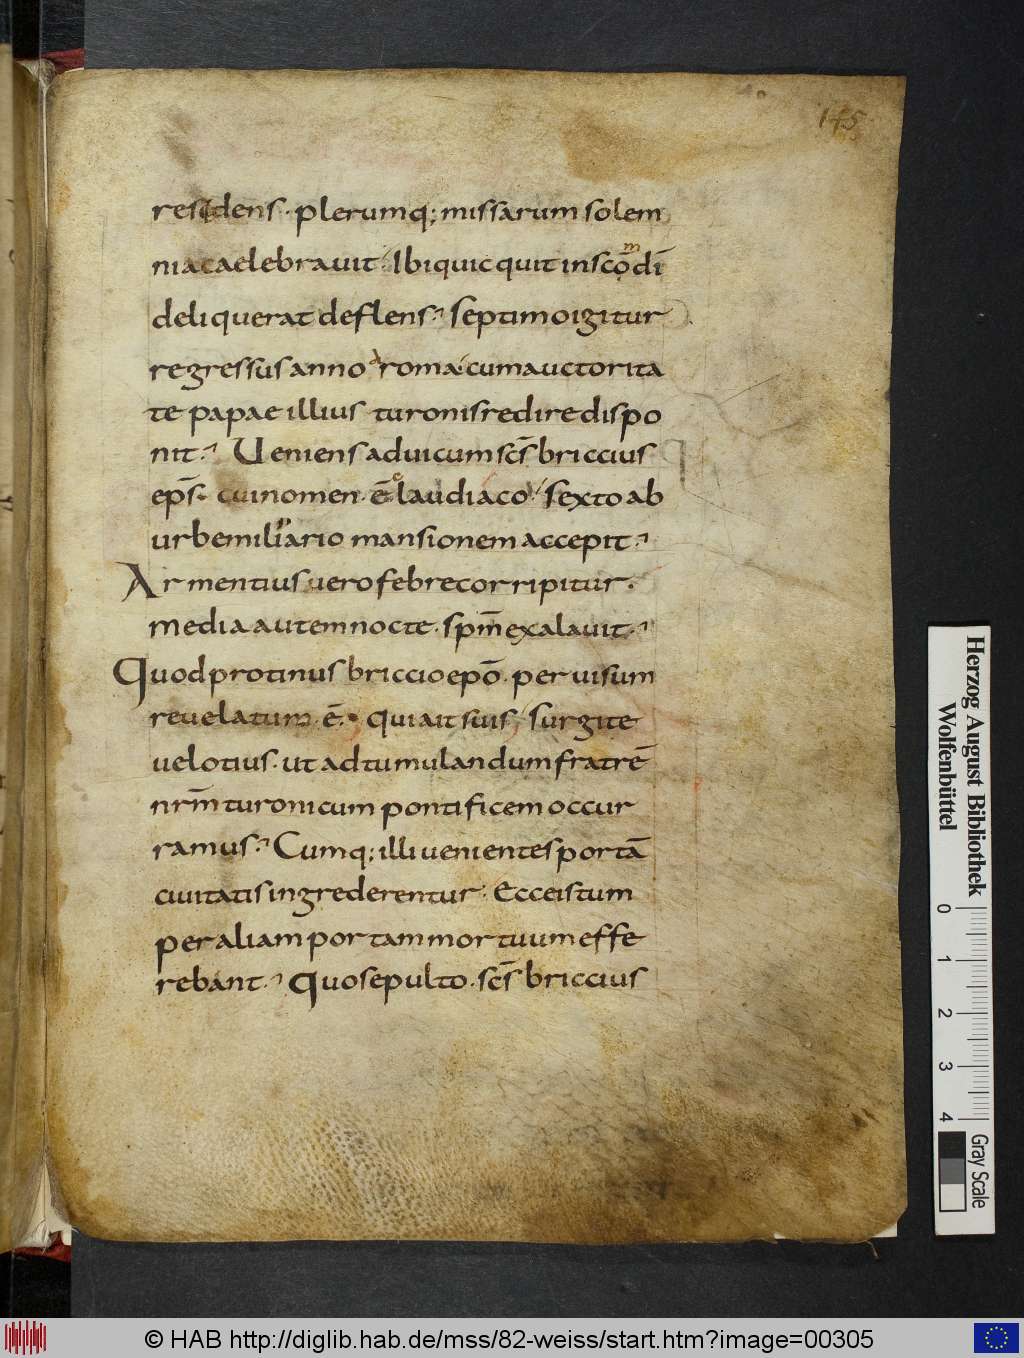 145
residens · plerumq; missarum solem
nia caelebravit · Ibi quicquit in scō m dī
deliquerat deflens · septimo igitur
regressus anno a roma · cum auctorita
te papae illius turonis redire dispo
nit · Ueniens ad vicum scs̄ briccius
eps̄ · cui nomen · ē laudiaco · sexto ab
urbe miliario mansionem accepit ·
Armentius uero febre corripitur ·
media autem nocte · spm̄ exalavit ·
Quod protinus briccio epō · per visum
revelatum · ē · qui ait suis, surgite
velotius · ut ad tumulandum fratrē
nrm̄ turonicum pontificem occur
ramus · Cumq; illi venientes portā
civitatis ingrederentur · Ecce istum
per aliam portam mortuum effe
rebant · Quo sepulto · scs̄ briccius
Herzog August Bibliothek
Wolfenbüttel
0 1 2 3 4
Gray Scale
© HAB http://diglib.hab.de/mss/82-weiss/start.htm?image=00305